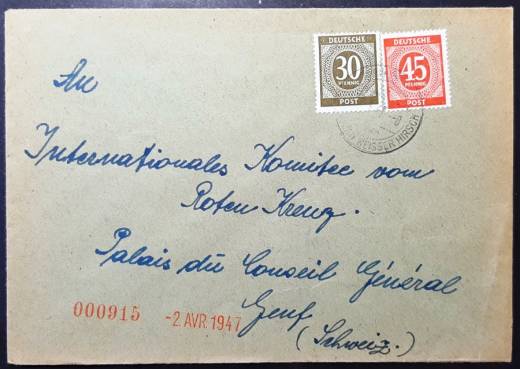 DEUTSCHE
30
PFENNIG
POST
DEUTSCHE
45
PFENNIG
POST
WEISSER HIRSCH
An
Internationales Komitee vom
Roten Kreuz.
Palais du Conseil Général
Genf
(Schweiz.)
000915 -2 AVR 1947